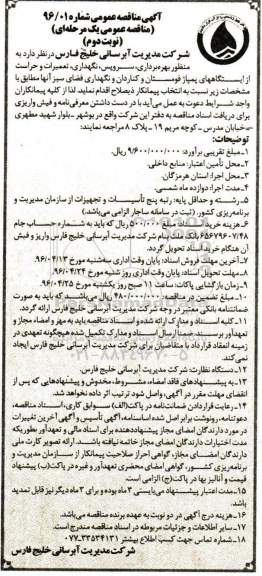 آگهی مناقصه عمومی شماره ۹۶/۰۱
(مناقصه عمومی یک مرحله‌ای)
(نوبت دوم)
شرکت مدیریت آبرسانی خلیج فارس در نظر دارد به
منظور بهره‌برداری، سرویس، نگهداری، تعمیرات و حراست
از ایستگاههای پمپاژ فومستان و کناردان و نگهداری فضای سبز آنها مطابق با
مشخصات زیر نسبت به انتخاب پیمانکار ذیصلاح اقدام نماید. لذا از کلیه پیمانکاران
واجد شرایط دعوت به عمل می‌آید با در دست داشتن معرفی‌نامه و فیش واریزی
برای دریافت اسناد مناقصه به دفتر این شرکت واقع در بوشهر ـ بلوار شهید مطهری
ـ خیابان مدرس ـ کوچه مریم ۱۹ ـ پلاک ۸ مراجعه نمایند:
توضیحات:
۱ـ مبلغ تقریبی برآورد: ۹/۶۰۰/۰۰۰/۰۰۰ ریال.
۲ـ محل تأمین اعتبار: منابع داخلی.
۳ـ محل اجرا: استان هرمزگان.
۴ـ مدت اجرا: دوازده ماه شمسی.
۵ـ رشته و حداقل پایه: رتبه پنج تأسیسات و تجهیزات از سازمان مدیریت و
برنامه‌ریزی کشور. (ثبت در سامانه ساجار الزامی می‌باشد.)
۶ـ هزینه خرید اسناد: مبلغ ۵۰۰/۰۰۰ ریال که باید به شماره حساب جام
۶۵۶۷۹۶۰۷۴۸ بانک ملت بنام شرکت مدیریت آبرسانی خلیج فارس واریز و فیش
آن هنگام خرید اسناد تحویل گردد.
۷ـ آخرین مهلت فروش اسناد: پایان وقت اداری سه‌شنبه مورخ ۹۶/۰۴/۱۳
۸ـ مهلت تحویل اسناد: پایان وقت اداری روز شنبه مورخ ۹۶/۰۴/۲۴
۹ـ زمان بازگشایی پاکات: ساعت ۱۱ صبح روز یکشنبه مورخ ۹۶/۰۴/۲۵
۱۰ـ مبلغ تضمین در مناقصه: ۴۸۰/۰۰۰/۰۰۰ ریال می‌باشد که باید به صورت
ضمانتنامه بانکی معتبر در وجه شرکت مدیریت آبرسانی خلیج فارس ارائه گردد.
۱۱ـ کلیه اسناد و مدارک ارائه شده و اسناد مناقصه باید به مهر و امضاء مجاز و
تعهدآور برسند. ضمناً ارسال اسناد و مدارک تکمیل شده هیچگونه تعهدی در
زمینه انعقاد قرارداد با متقاضیان برای شرکت مدیریت آبرسانی خلیج فارس ایجاد
نمی‌کند.
۱۲ـ دستگاه نظارت: شرکت مدیریت آبرسانی خلیج فارس.
۱۳ـ به پیشنهادهای فاقد امضاء، مشروط، مخدوش و پیشنهادهایی که پس از
انقضای مهلت مقرر در آگهی، واصل شود ترتیب اثر داده نخواهد شد.
۱۴ـ رعایت قرار دادن ضمانت‌نامه در پاکت(الف) سوابق کاری، اسناد مناقصه،
دعوتنامه، رونوشت برابر اصل شده اساسنامه، آگهی تأسیس و آگهی آخرین تغییرات
در مورد دارندگان امضای مجاز پیشنهاددهنده برای اسناد مالی و تعهدآور بطوریکه
مدت اختیارات دارندگان امضای مجاز خاتمه نیافته باشد. ارائه تصویر کارت ملی
دارندگان امضای مجاز، گواهی احراز صلاحیت پیمانکار از سازمان مدیریت و
برنامه‌ریزی کشور، گواهی امضای محضری تعهدآور و غیره در پاکت(ب) پیشنهاد
قیمت و آنالیز بها در پاکت(ج) الزامی است.
۱۵ـ مدت اعتبار پیشنهاد می‌بایستی ۳ ماه بوده و برای ۳ ماه دیگر نیز قابل تمدید
باشد.
۱۶ـ هزینه درج آگهی در دو نوبت به عهده برنده مناقصه می‌باشد.
۱۷ـ سایر اطلاعات و جزئیات مربوطه در اسناد مناقصه مندرج است.
۱۸ـ شماره تماس جهت کسب اطلاع بیشتر ۳۳۵۳۴۱۳۱ـ۰۷۷
شرکت مدیریت آبرسانی خلیج فارس
۰۲۱-۸۸۳۴۹۶۷۰-۵